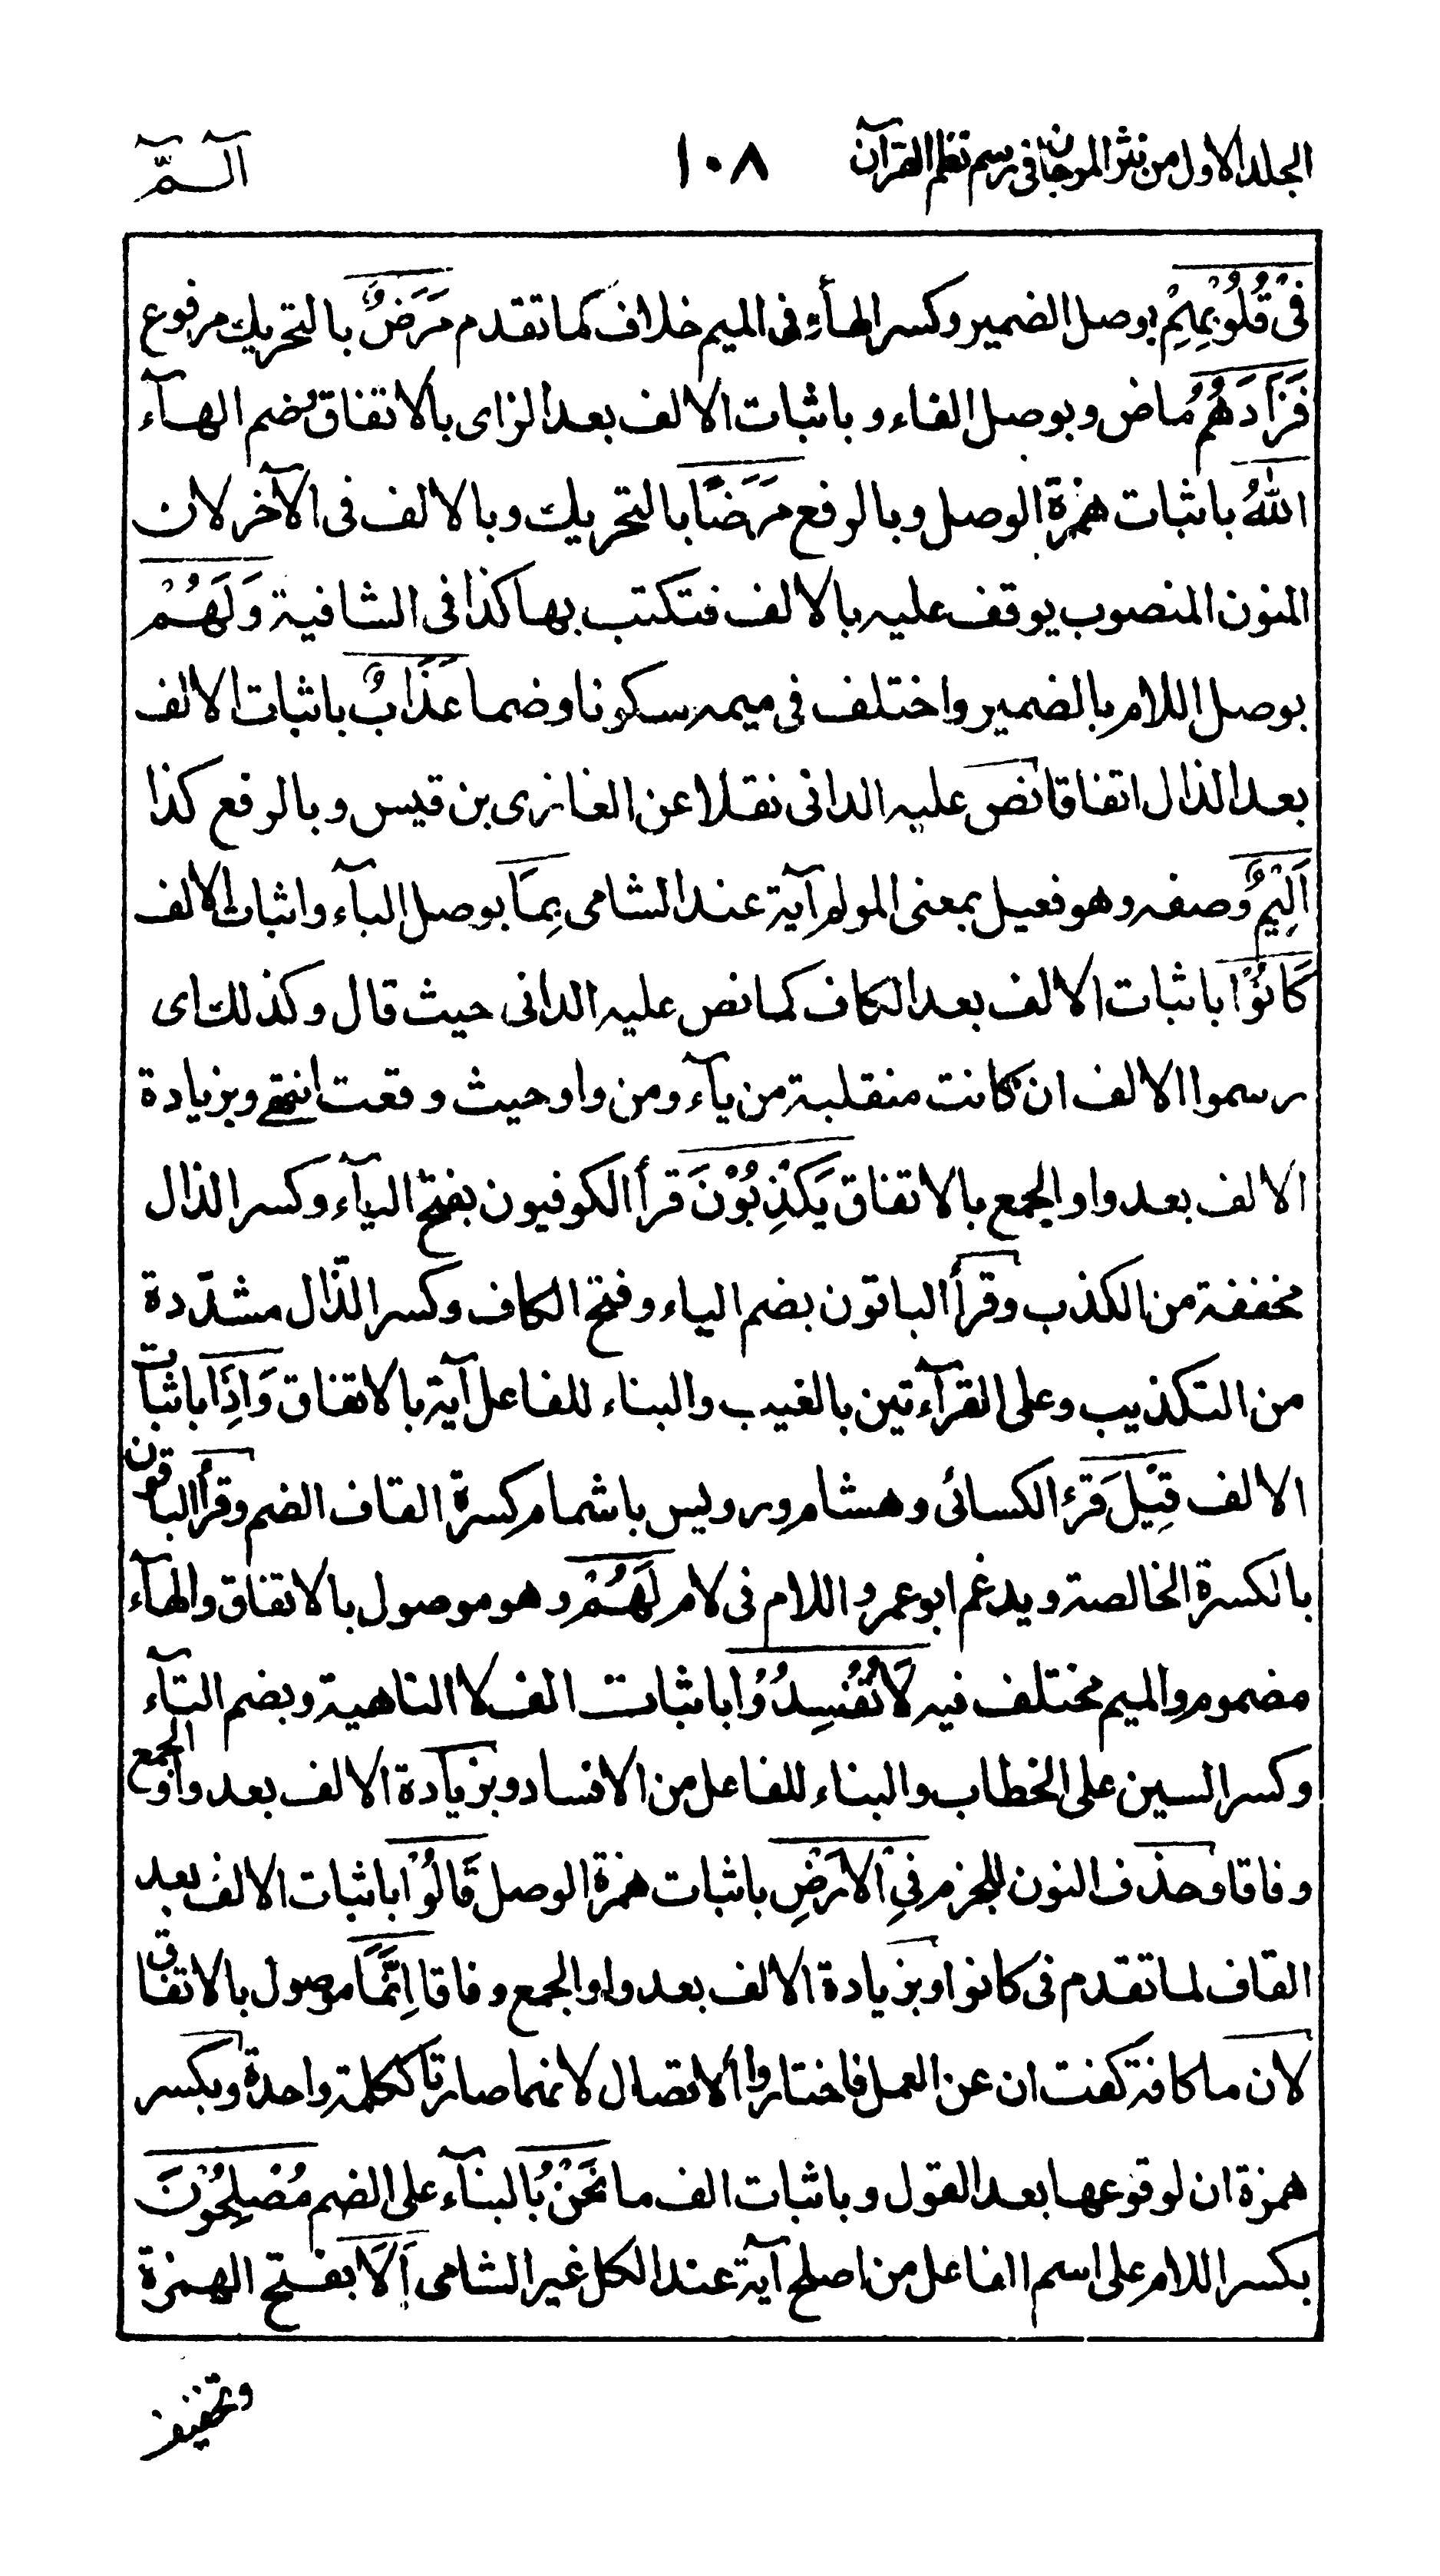 الجلد الاول من نثر المرجان فى رسم نظم القرآن ١٠٨ آلـمّٓ
فِىْ قُلُوْبِهِمْ بوصل الضمير وكسر الهاء فى الميم خلاف كما تقدم مَرَضٌ بالتحريك مرفوع
فَزَادَهُمُ ماض وبوصل الفاء و باثبات الالف بعد الزاى بالاتفاق بضم الهآء
اللهُ باثبات همزة الوصل وبالرفع مَرَضًا بالتحريك وبالالف فى الآخر لان
المنون المنصوب يوقف عليه بالالف فتكتب بها كذا فى الشافية وَلَهُمْ
بوصل اللام بالضمير واختلف فى ميمه سكونا وضما عَذَابٌ باثبات الالف
بعد الذال اتفاقا نص عليه الدانى نقلا عن الغازى بن قيس وبالرفع كذا
اَلِيْمٌ وصفه وهو فعيل بمعنى المولم آية عند الشامى بِمَا بوصل البآء واثبات الالف
كَانُوْا باثبات الالف بعد الكاف كما نص عليه الدانى حيث قال وكذلك اى
رسموا الالف ان كانت منقلبة من يآء ومن واو حيث وقعت انتهى وبزيادة
الالف بعد واو الجمع بالاتفاق يَكْذِبُوْنَ قرأ الكوفيون بفتح اليآء وكسر الذال
مخففة من الكذب وقرأ الباقون بضم الياء وفتح الكاف وكسر الذّال مشدّدة
من التكذيب وعلى القرآءتين بالغيب والبناء للفاعل آية بالاتفاق وَاِذَا باثبات
الالف قِيْلَ قرء الكسائى وهشام ورويس باشمام كسرة القاف الضم وقرأ الباقون
بالكسرة الخالصة ويدغم ابو عمرو اللام فى لام لَهُمْ وهو موصول بالاتفاق والهآء
مضموم والميم مختلف فيه لَا تُفْسِدُوْا باثبات الف لا الناهية وبضم التآء
وكسر السين على الخطاب والبناء للفاعل من الافساد وبزيادة الالف بعد واو الجمع
وفاقا وحذف النون للجزم فِي الْاَرْضِ باثبات همزة الوصل قَالُوْا باثبات الالف بعد
القاف لما تقدم فى كانوا وبزيادة الالف بعد واو الجمع وفاقا اِنَّمَا موصول بالاتفاق
لان ما كافة كفت ان عن العمل فاختاروا الاتصال لانهما صارتا ككلمة واحدة وبكسر
همزة ان لوقوعها بعد القول وباثبات الف ما نَحْنُ بالبنآء على الضم مُصْلِحُوْنَ
بكسر اللام على اسم الفاعل من اصلح آية عند الكل غير الشامى اَلَا بفتح الهمزة
وتخفيف